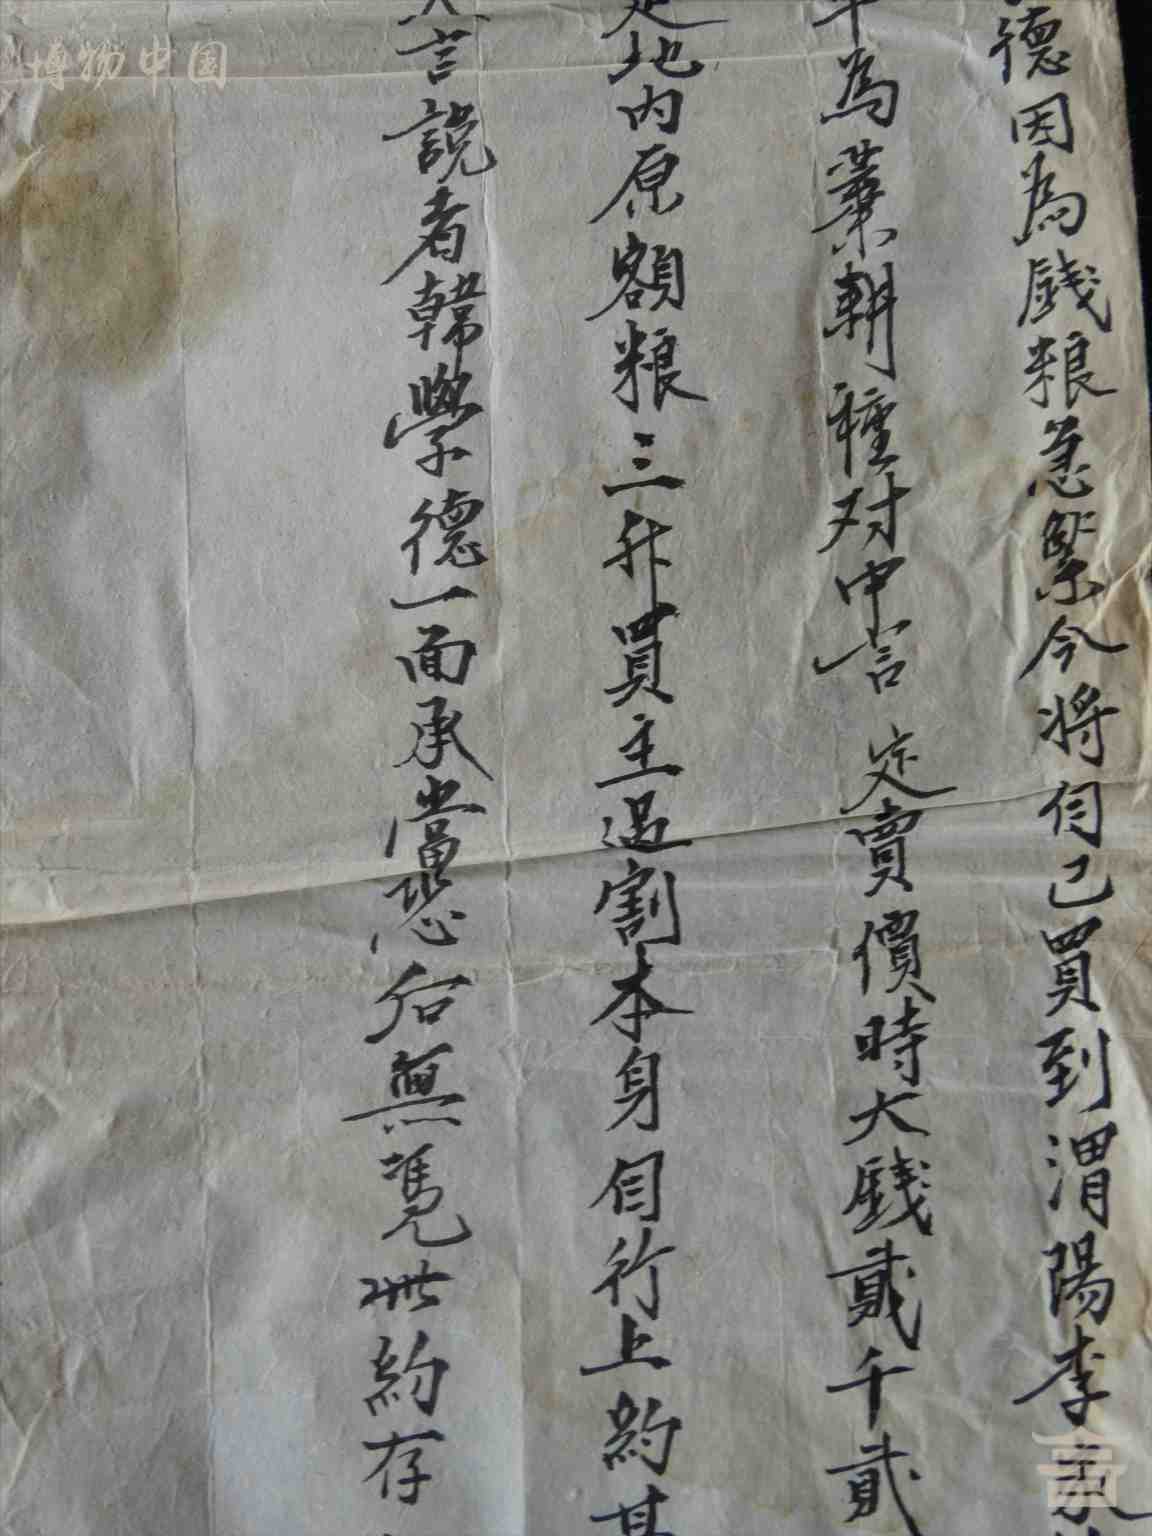 德因為錢粮急緊今将自己買到渭陽李
為業耕種对中言定賣價時大錢貳千貳
定地内原額粮三升買主过割本身自行上約其
言說者韓學德一面承當恐后無凴此約存
博物中国